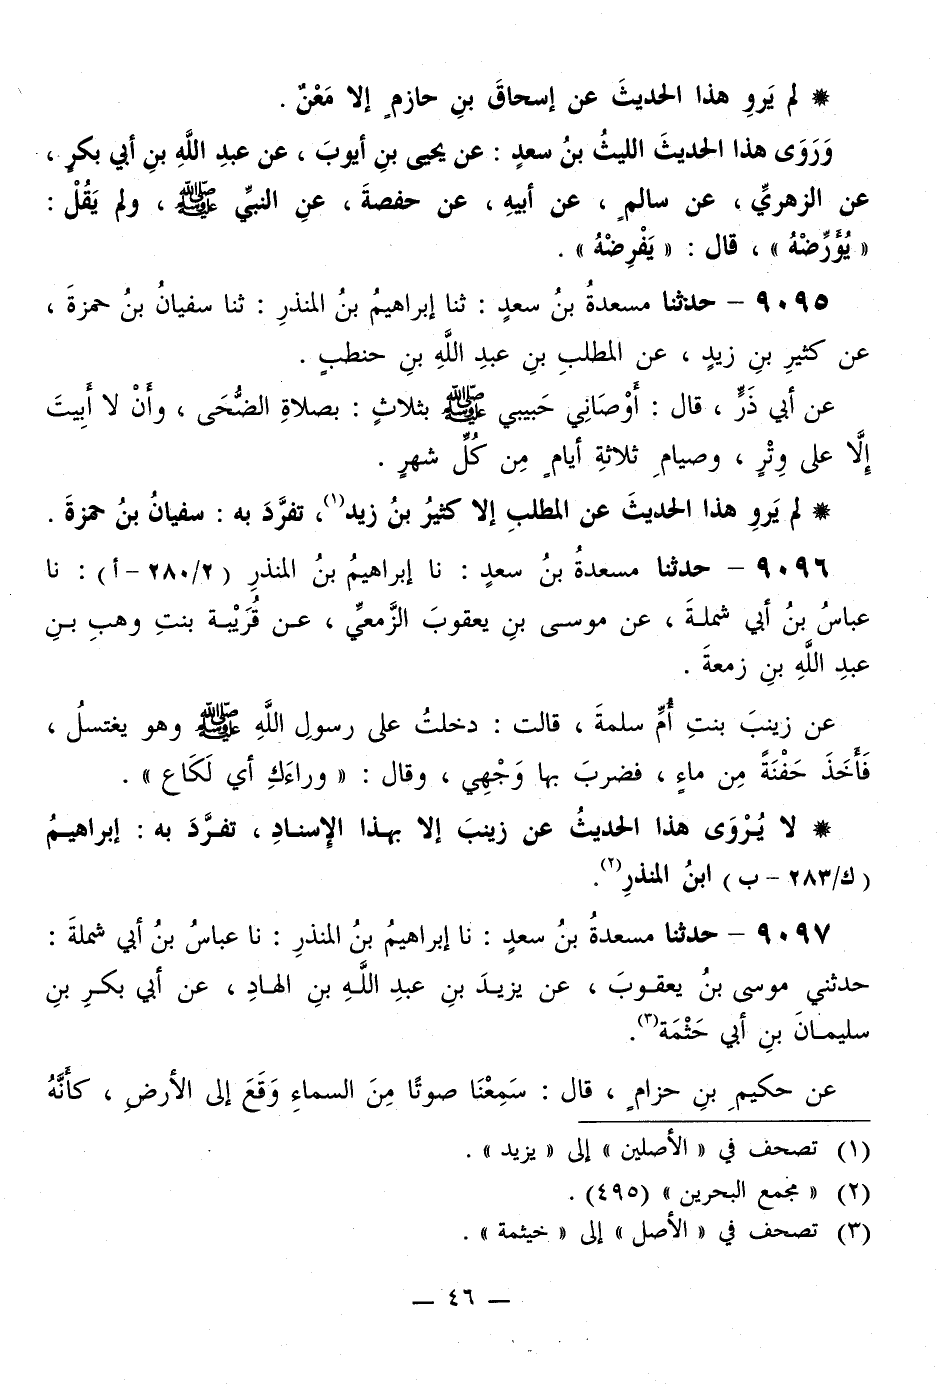 * لم يَروِ هذا الحديثَ عن إسحاقَ بنِ حازمٍ إلا مَعْنٌ .
وَرَوَى هذا الحديثَ الليثُ بنُ سعدٍ : عن يحيى بنِ أيوبَ ، عن عبدِ اللَّهِ بنِ أبي بكرٍ ،
عن الزهريِّ ، عن سالمٍ ، عن أبيهِ ، عن حفصةَ ، عنِ النبيِّ ﷺ ، ولم يَقُلْ :
« يُؤَرِّضْهُ » ، قال : « يَفْرِضْهُ » .
٩٠٩٥ – حدثنا مسعدةُ بنُ سعدٍ : ثنا إبراهيمُ بنُ المنذرِ : ثنا سفيانُ بنُ حمزةَ ،
عن كثيرِ بنِ زيدٍ ، عن المطلبِ بنِ عبدِ اللَّهِ بنِ حنطبٍ .
عن أبي ذَرٍّ ، قال : أَوْصَانِي حَبيبي ﷺ بثلاثٍ : بصلاةِ الضُّحَى ، وأَنْ لا أَبِيتَ
إِلَّا على وِتْرٍ ، وصيامِ ثلاثةِ أيامٍ مِن كُلِّ شهرٍ .
* لم يَروِ هذا الحديثَ عن المطلبِ إلا كثيرُ بنُ زيد(١)، تفرَّدَ به : سفيانُ بنُ حمزةَ .
٩٠٩٦ – حدثنا مسعدةُ بنُ سعدٍ : نا إبراهيمُ بنُ المنذرِ (٢/٢٨٠ – أ) : نا
عباسُ بنُ أبي شملةَ ، عن موسى بنِ يعقوبَ الزَّمعيِّ ، عن قُرَيْبة بنتِ وهبِ بنِ
عبدِ اللَّهِ بنِ زمعةَ .
عن زينبَ بنتِ أُمِّ سلمةَ ، قالت : دخلتُ على رسولِ اللَّهِ ﷺ وهو يغتسلُ ،
فَأَخَذَ حَفْنَةً مِن ماءٍ ، فضربَ بها وَجْهِي ، وقال : « وراءَكِ أي لَكَاعِ » .
* لا يُرْوَى هذا الحديثُ عن زينبَ إلا بهذا الإِسنادِ ، تفرَّدَ به : إبراهيمُ
(ك/٢٨٣ – ب) ابنُ المنذرِ(٢).
٩٠٩٧ – حدثنا مسعدةُ بنُ سعدٍ : نا إبراهيمُ بنُ المنذرِ : نا عباسُ بنُ أبي شملةَ :
حدثني موسى بنُ يعقوبَ ، عن يزيدَ بنِ عبدِ اللَّهِ بنِ الهادِ ، عن أبي بكرِ بنِ
سليمانَ بنِ أبي حَثْمَة(٣).
عن حكيمِ بنِ حزامٍ ، قال : سَمِعْنَا صوتًا مِنَ السماءِ وَقَعَ إلى الأرضِ ، كأَنَّهُ
(١) تصحف في « الأصلين » إلى « يزيد » .
(٢) « مجمع البحرين » (٤٩٥) .
(٣) تصحف في « الأصل » إلى « خيثمة » .
— ٤٦ —